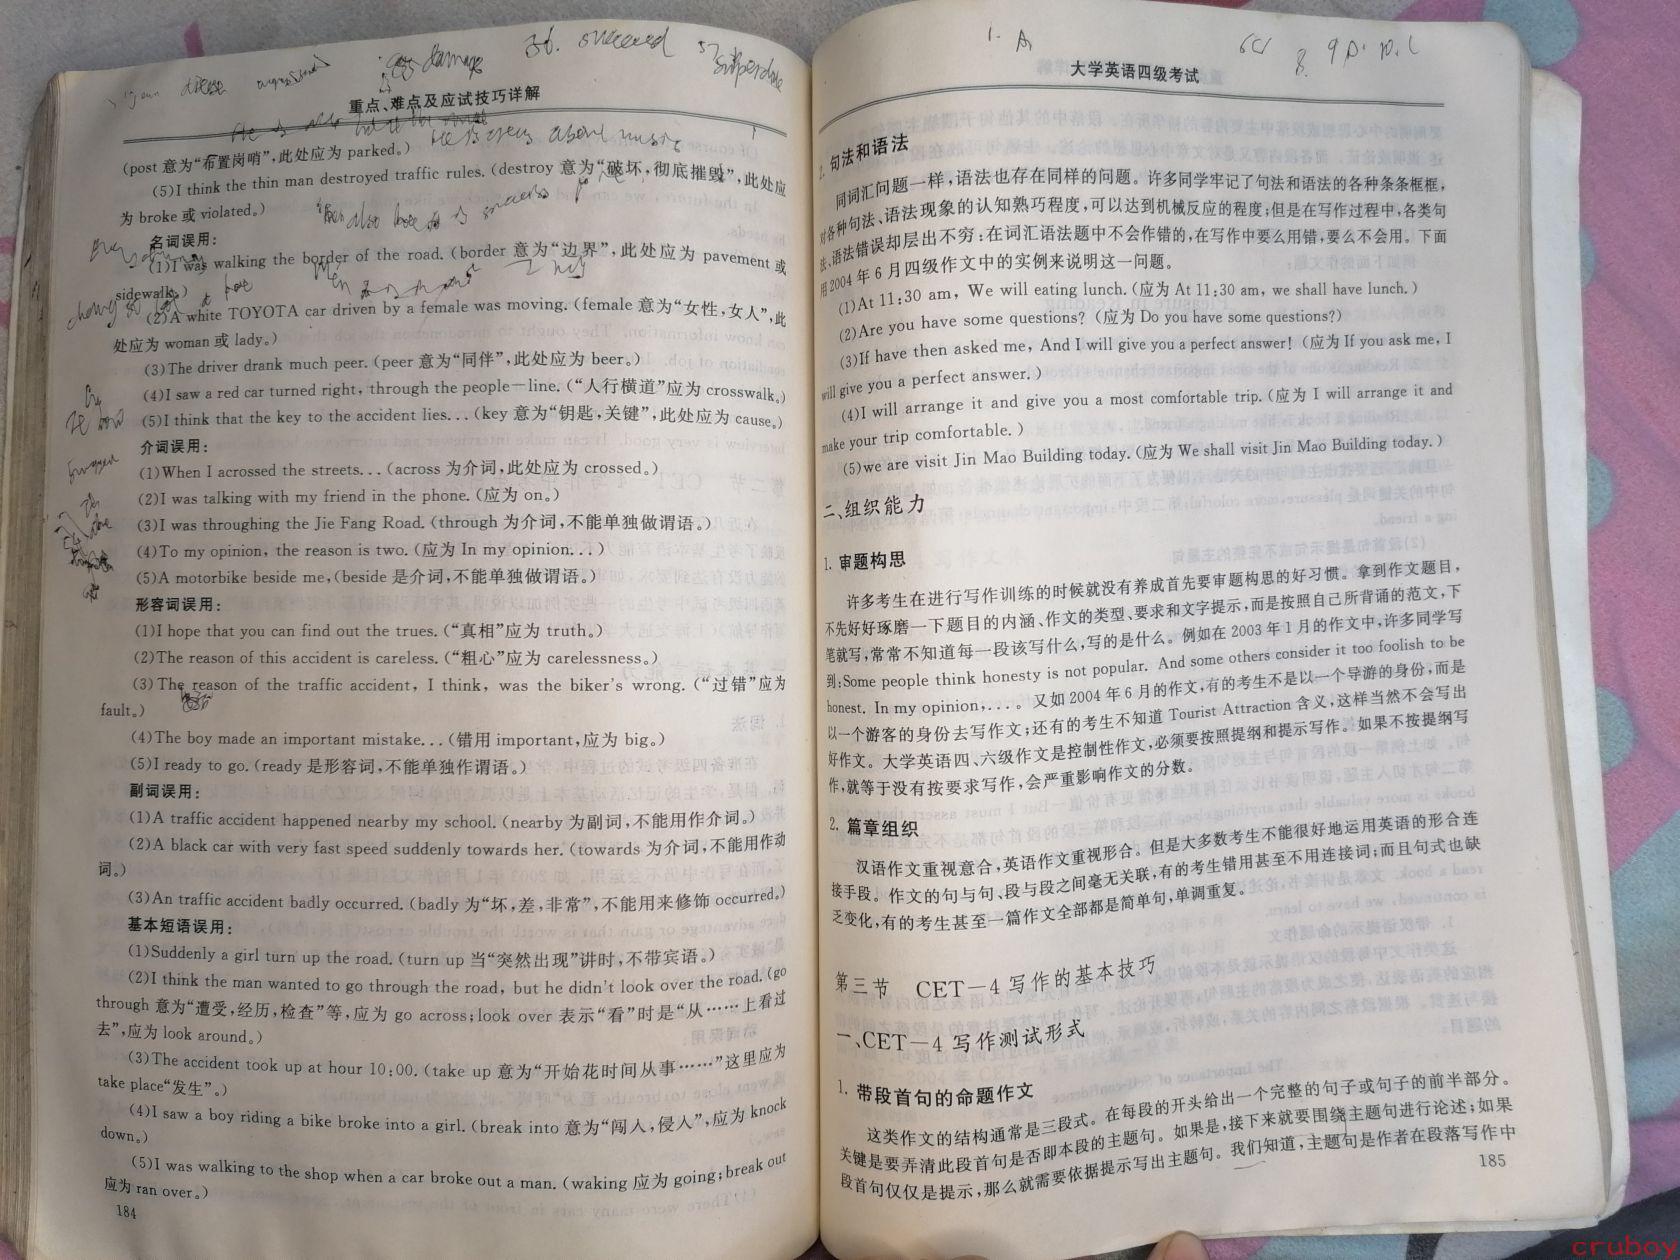 重点、难点及应试技巧详解
(post 意为“布置岗哨”,此处应为 parked。)
(5)I think the thin man destroyed traffic rules. (destroy 意为“破坏,彻底摧毁”,此处应
为 broke 或 violated。)
名词误用:
(1)I was walking the border of the road. (border 意为“边界”,此处应为 pavement 或
sidewalk。)
(2)A white TOYOTA car driven by a female was moving. (female 意为“女性,女人”,此
处应为 woman 或 lady。)
(3)The driver drank much peer. (peer 意为“同伴”,此处应为 beer。)
(4)I saw a red car turned right, through the people—line. (“人行横道”应为 crosswalk。)
(5)I think that the key to the accident lies... (key 意为“钥匙,关键”,此处应为 cause。)
介词误用:
(1)When I acrossed the streets... (across 为介词,此处应为 crossed。)
(2)I was talking with my friend in the phone. (应为 on。)
(3)I was throughing the Jie Fang Road. (through 为介词,不能单独做谓语。)
(4)To my opinion, the reason is two. (应为 In my opinion...)
(5)A motorbike beside me, (beside 是介词,不能单独做谓语。)
形容词误用:
(1)I hope that you can find out the trues. (“真相”应为 truth。)
(2)The reason of this accident is careless. (“粗心”应为 carelessness。)
(3)The reason of the traffic accident, I think, was the biker's wrong. (“过错”应为
fault。)
(4)The boy made an important mistake... (错用 important,应为 big。)
(5)I ready to go. (ready 是形容词,不能单独作谓语。)
副词误用:
(1)A traffic accident happened nearby my school. (nearby 为副词,不能用作介词。)
(2)A black car with very fast speed suddenly towards her. (towards 为介词,不能用作动
词。)
(3)An traffic accident badly occurred. (badly 为“坏,差,非常”,不能用来修饰 occurred。)
基本短语误用:
(1)Suddenly a girl turn up the road. (turn up 当“突然出现”讲时,不带宾语。)
(2)I think the man wanted to go through the road, but he didn't look over the road. (go
through 意为“遭受,经历,检查”等,应为 go across; look over 表示“看”时是“从……上看过
去”,应为 look around。)
(3)The accident took up at hour 10:00. (take up 意为“开始花时间从事……”这里应为
take place“发生”。)
(4)I saw a boy riding a bike broke into a girl. (break into 意为“闯入,侵入”,应为 knock
down。)
(5)I was walking to the shop when a car broke out a man. (waking 应为 going; break out
应为 ran over。)
184
大学英语四级考试
2. 句法和语法
同词汇问题一样,语法也存在同样的问题。许多同学牢记了句法和语法的各种条条框框,
对各种句法、语法现象的认知熟巧程度,可以达到机械反应的程度;但是在写作过程中,各类句
法、语法错误却层出不穷:在词汇语法题中不会作错的,在写作中要么用错,要么不会用。下面
用 2004 年 6 月四级作文中的实例来说明这一问题。
(1)At 11:30 am, We will eating lunch. (应为 At 11:30 am, we shall have lunch.)
(2)Are you have some questions? (应为 Do you have some questions?)
(3)If have then asked me, And I will give you a perfect answer! (应为 If you ask me, I
will give you a perfect answer.)
(4)I will arrange it and give you a most comfortable trip. (应为 I will arrange it and
make your trip comfortable.)
(5)we are visit Jin Mao Building today. (应为 We shall visit Jin Mao Building today.)
二、组织能力
1. 审题构思
许多考生在进行写作训练的时候就没有养成首先要审题构思的好习惯。拿到作文题目,
不先好好琢磨一下题目的内涵、作文的类型、要求和文字提示,而是按照自己所背诵的范文,下
笔就写,常常不知道每一段该写什么,写的是什么。例如在 2003 年 1 月的作文中,许多同学写
到:Some people think honesty is not popular. And some others consider it too foolish to be
honest. In my opinion,...。又如 2004 年 6 月的作文,有的考生不是以一个导游的身份,而是
以一个游客的身份去写作文;还有的考生不知道 Tourist Attraction 含义,这样当然不会写出
好作文。大学英语四、六级作文是控制性作文,必须要按照提纲和提示写作。如果不按提纲写
作,就等于没有按要求写作,会严重影响作文的分数。
2. 篇章组织
汉语作文重视意合,英语作文重视形合。但是大多数考生不能很好地运用英语的形合连
接手段。作文的句与句、段与段之间毫无关联,有的考生错用甚至不用连接词;而且句式也缺
乏变化,有的考生甚至一篇作文全部都是简单句,单调重复。
第三节 CET—4 写作的基本技巧
一、CET—4 写作测试形式
1. 带段首句的命题作文
这类作文的结构通常是三段式。在每段的开头给出一个完整的句子或句子的前半部分。
关键是要弄清此段首句是否即本段的主题句。如果是,接下来就要围绕主题句进行论述;如果
段首句仅仅是提示,那么就需要依据提示写出主题句。我们知道,主题句是作者在段落写作中
185
cruboy